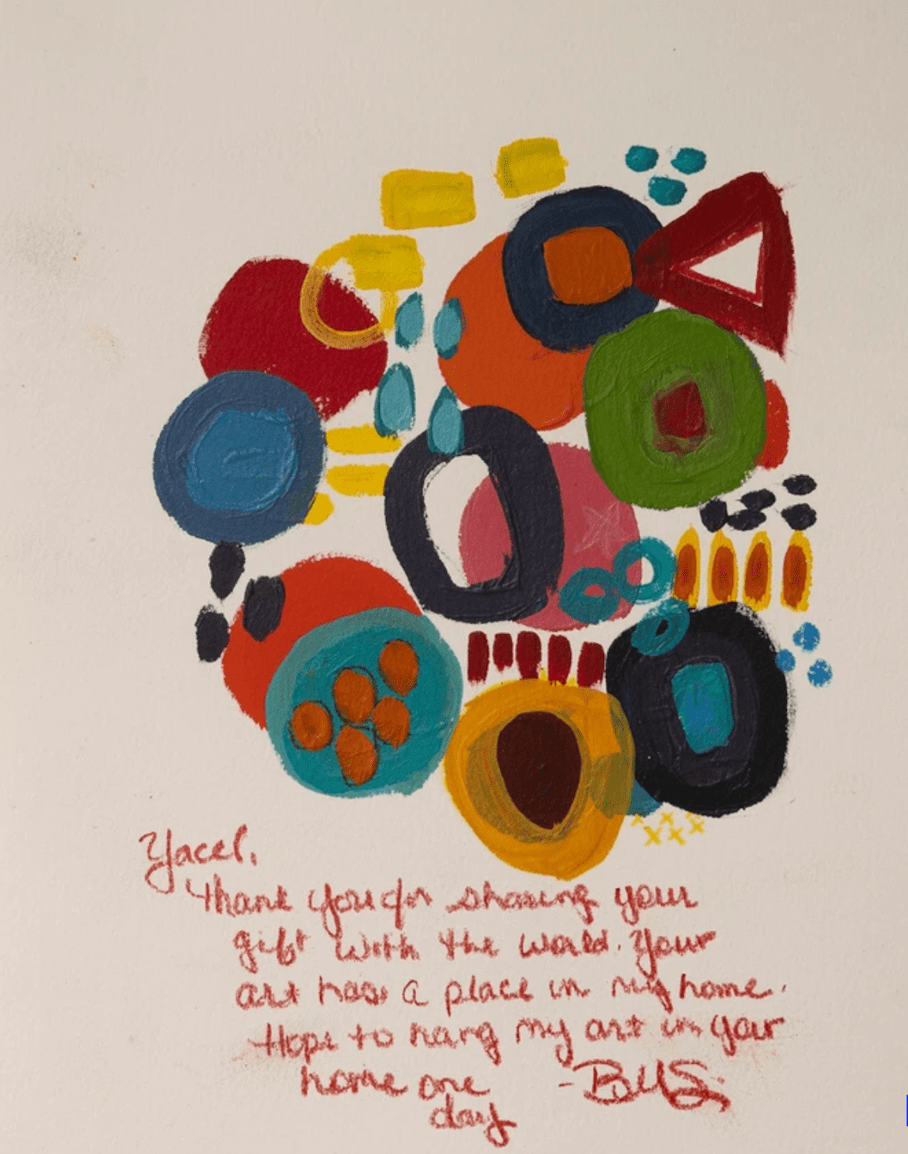 Yacel,
Thank you for sharing your
gift with the world. Your
art has a place in my home.
Hope to hang my art in your
home one
day